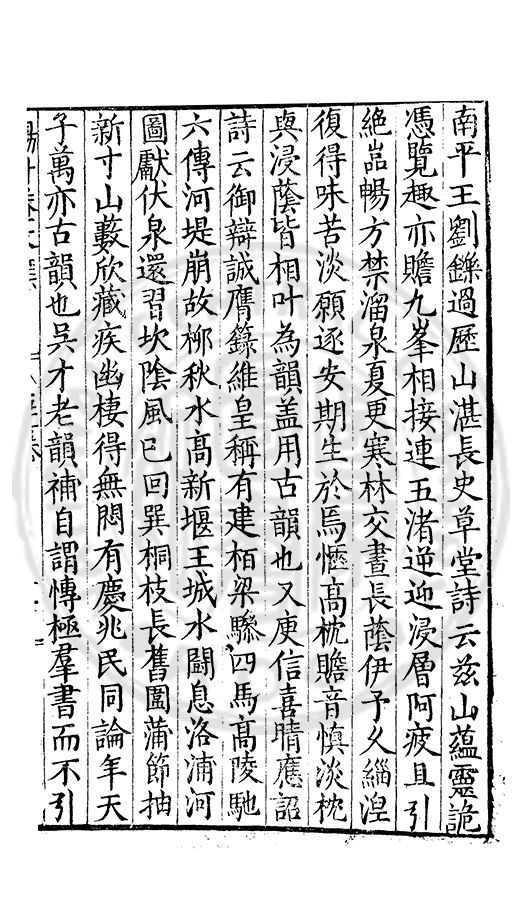 南平王劉鑠過歷山湛長史草堂詩云兹山蘊靈詭
憑覽趣亦贍九峯相接連五渚逆迎浸層阿疲且引
絶嵓暢方禁溜泉夏更寒林交晝長蔭伊予久緇涅
復得味苦淡願逐安期生於焉愜高枕贍音慎淡枕
與浸蔭皆相叶為韻盖用古韻也又庾信喜晴應詔
詩云御辯誠膺籙維皇稱有建栢梁驂四馬高陵馳
六傳河堤崩故柳秋水高新堰王城水鬬息洛浦河
圖獻伏泉還習坎陰風已回巽桐枝長舊圍蒲節抽
新寸山藪欣藏疾幽棲得無悶有慶兆民同論年天
子萬亦古韻也吳才老韻補自謂慱極羣書而不引